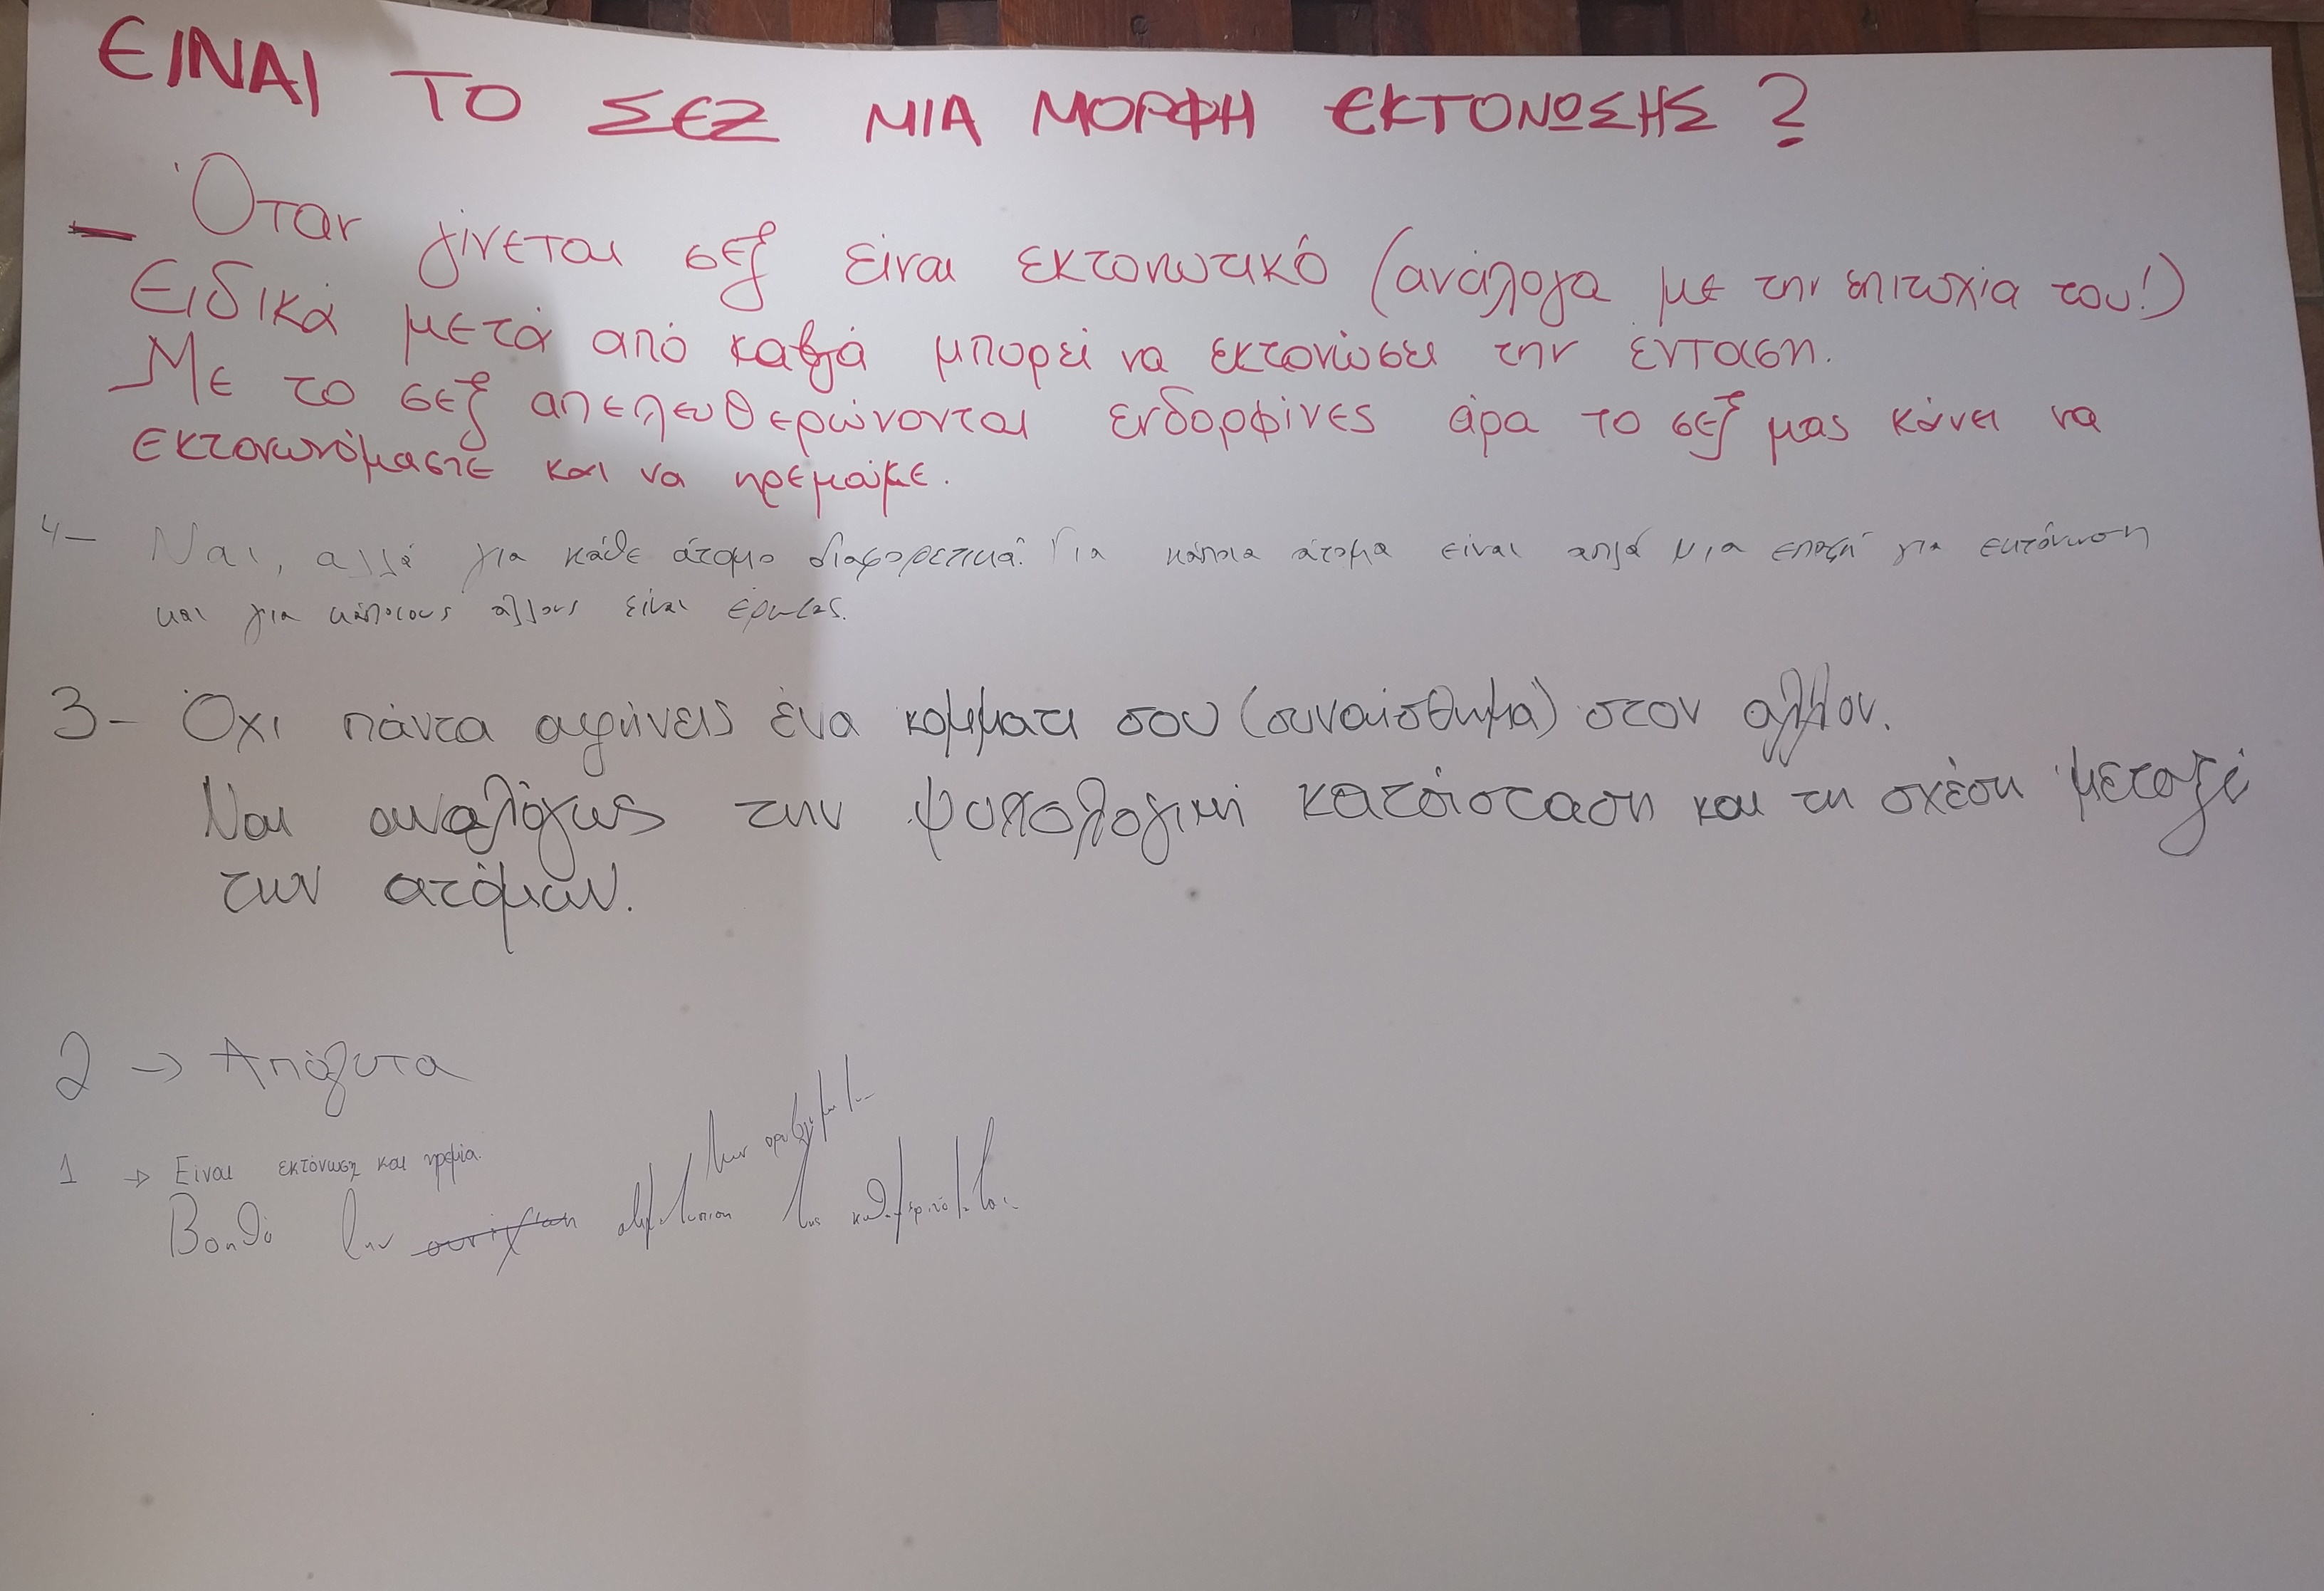 ΕΙΝΑΙ ΤΟ ΣΕΞ ΜΙΑ ΜΟΡΦΗ ΕΚΤΟΝΩΣΗΣ ?
- Όταν γίνεται σεξ είναι εκτονωτικό (ανάλογα με την επιτυχία του!)
Ειδικά μετά από καβγά μπορεί να εκτονώσει την ένταση.
Με το σεξ απελευθερώνονται ενδορφίνες άρα το σεξ μας κάνει να
εκτονωνόμαστε και να ηρεμούμε.
4- Ναι, αλλά για κάθε άτομο διαφορετικά. Για κάποια άτομα είναι απλά μια επαφή για εκτόνωση
και για κάποιους άλλους είναι έρωτας.
3- Όχι πάντα αφήνεις ένα κομματι σου (συναίσθημα) στον αλλον.
Ναι αναλόγως την ψυχολογική κατάσταση και τη σχέση μεταξύ
των ατόμων.
2 → Απόλυτα
1 → Είναι εκτόνωση και ηρεμία.
των προβλημάτων
Βοηθά την αντιμετώπιση της καθημερινότητας